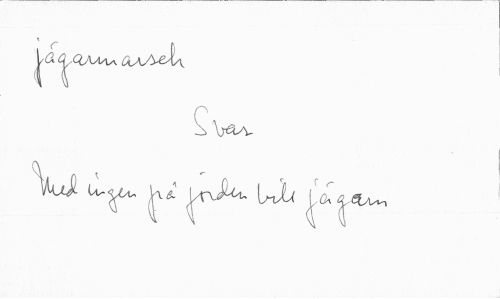 jägarmarsch
Svar
Med ingen på jorden vill jägarn